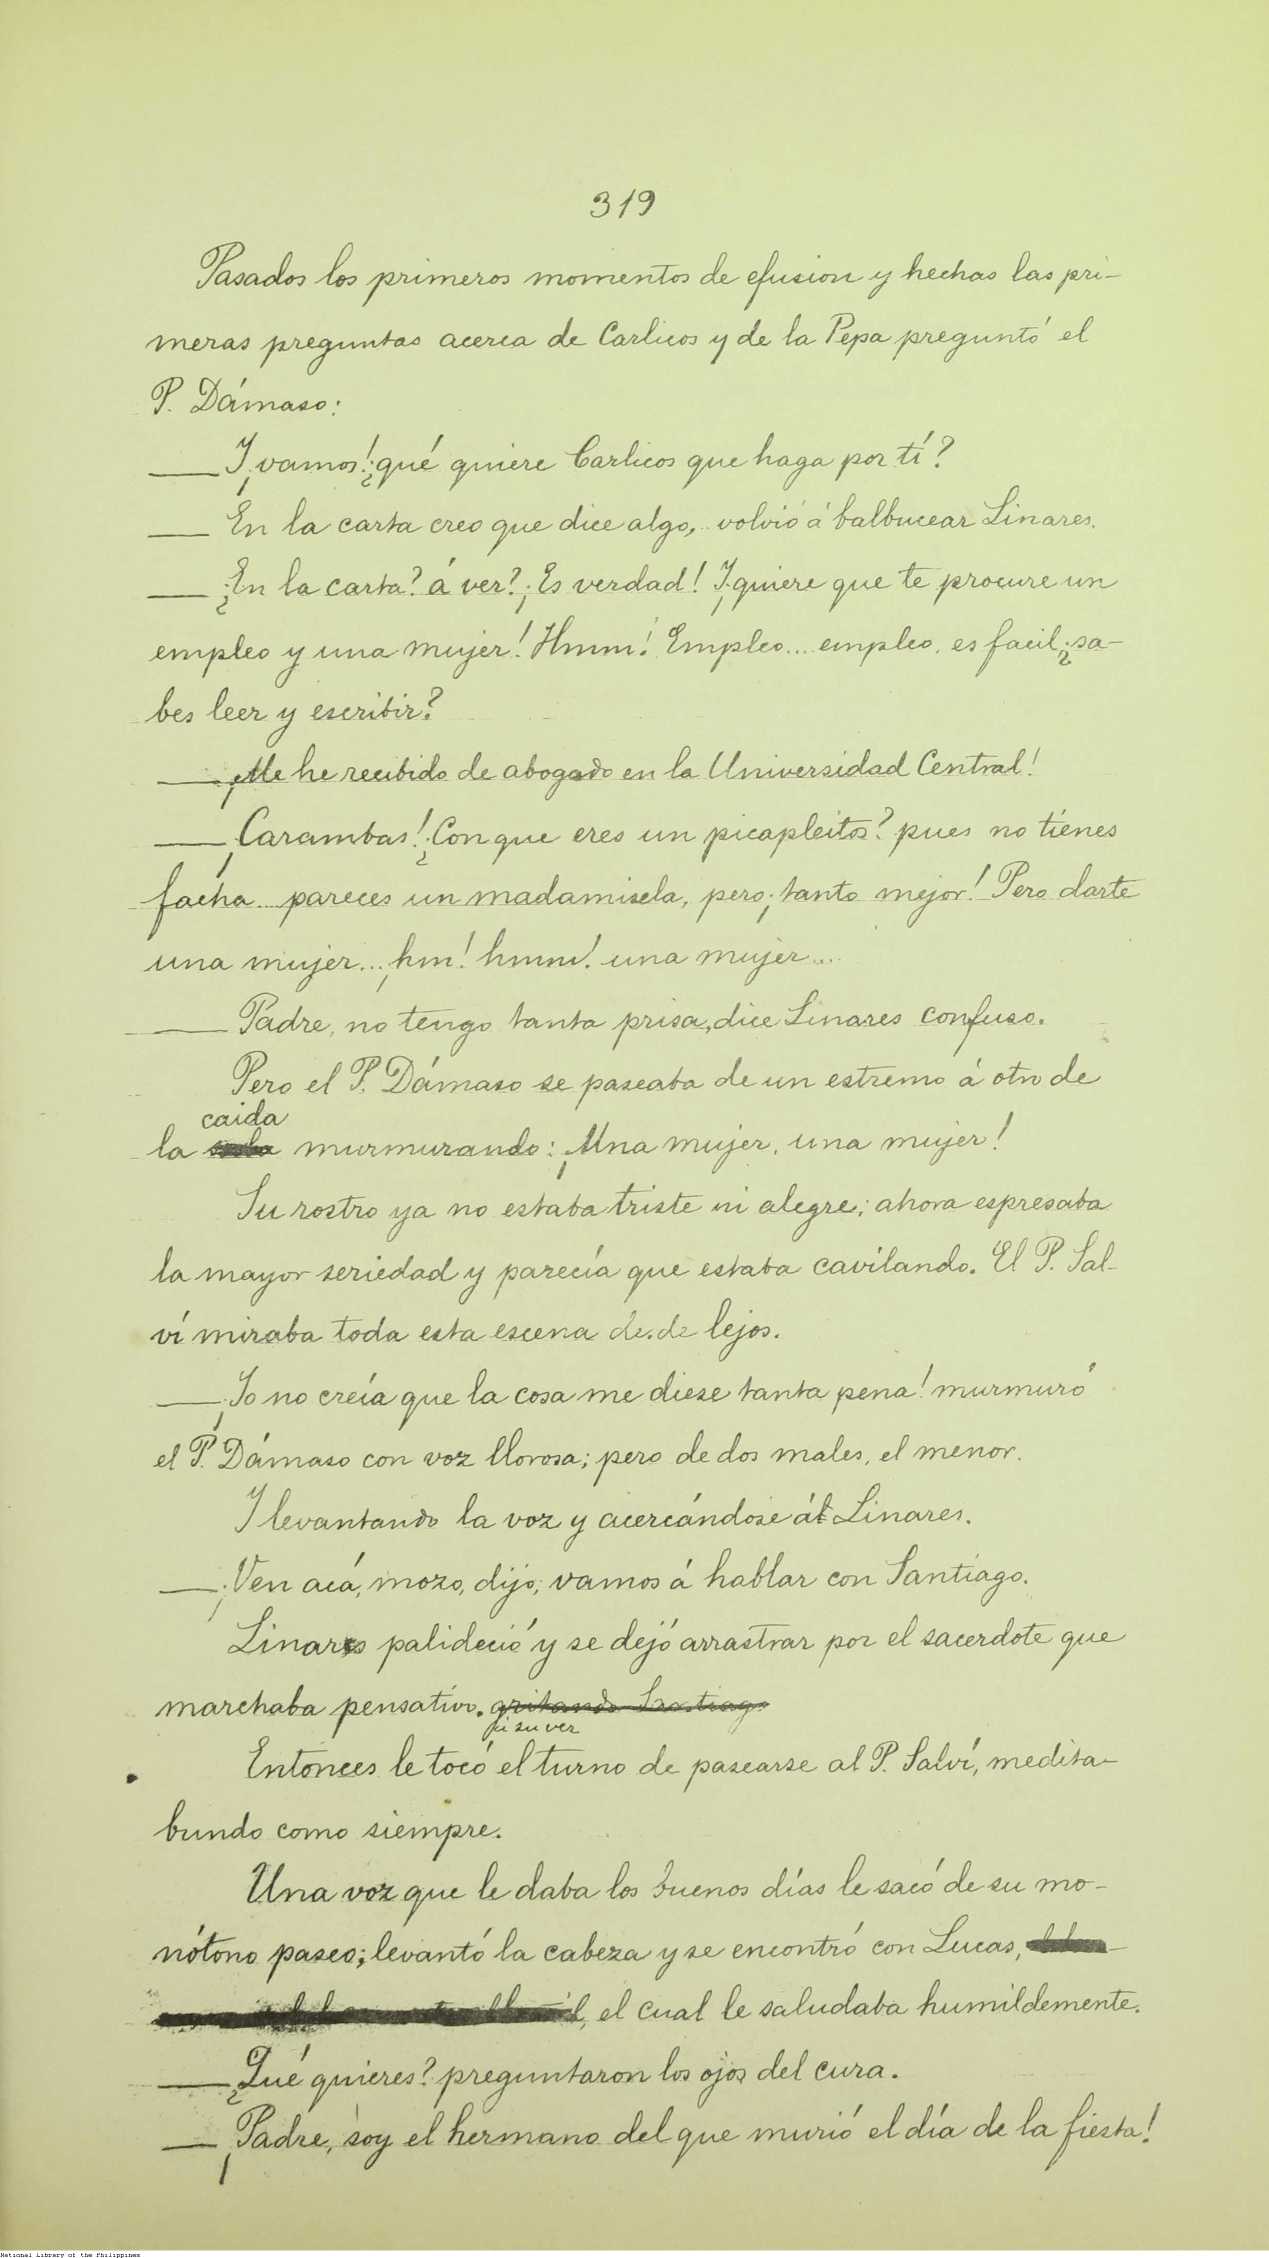 319
Pasados los primeros momentos de efusion y hechas las pri-
meras preguntas acerca de Carlicos y de la Pepa preguntó el
P. Dámaso:
— ¡Y vamos! ¿qué quiere Carlicos que haga por tí?
— En la carta creo que dice algo, volvió á balbucear Linares.
— ¿En la carta? á ver? ¡Es verdad! ¡Y quiere que te procure un
empleo y una mujer! Hmm! Empleo... empleo, es facil; ¿sa-
bes leer y escribir?
— ¡Me he recibido de abogado en la Universidad Central!
— ¡Carambas! ¿Con que eres un picapleitos? pues no tienes
facha... pareces un madamisela, pero ¡tanto mejor! Pero darte
una mujer... ¡hm! hmm! una mujer...
— Padre, no tengo tanta prisa, dice Linares confuso.
Pero el P. Dámaso se paseaba de un estremo á otro de
caida
la sala murmurando: ¡Una mujer, una mujer!
Su rostro ya no estaba triste ni alegre; ahora espresaba
la mayor seriedad y parecía que estaba cavilando. El P. Sal-
ví miraba toda esta escena desde lejos.
— ¡Yo no creía que la cosa me diese tanta pena! murmuró
el P. Dámaso con voz llorosa; pero de dos males, el menor.
Y levantando la voz y acercándose á Linares.
— ¡Ven acá, mozo, dijo; vamos á hablar con Santiago.
Linares palideció y se dejó arrastrar por el sacerdote que
marchaba pensativo. gritando Santiago
á su vez
Entonces le tocó el turno de pasearse al P. Salví, medita-
bundo como siempre.
Una voz que le daba los buenos días le sacó de su mo-
nótono paseo; levantó la cabeza y se encontró con Lucas,
el cual le saludaba humildemente.
— ¿Qué quieres? preguntaron los ojos del cura.
— ¡Padre, soy el hermano del que murió el día de la fiesta!
National Library of the Philippines